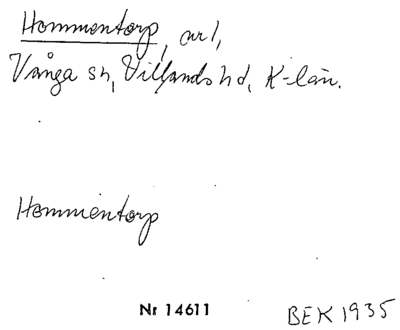 Hommentorp, avl,
Vånga sn, Villands hd, K-län.
Hommentorp
Nr 14611
BEK 1935